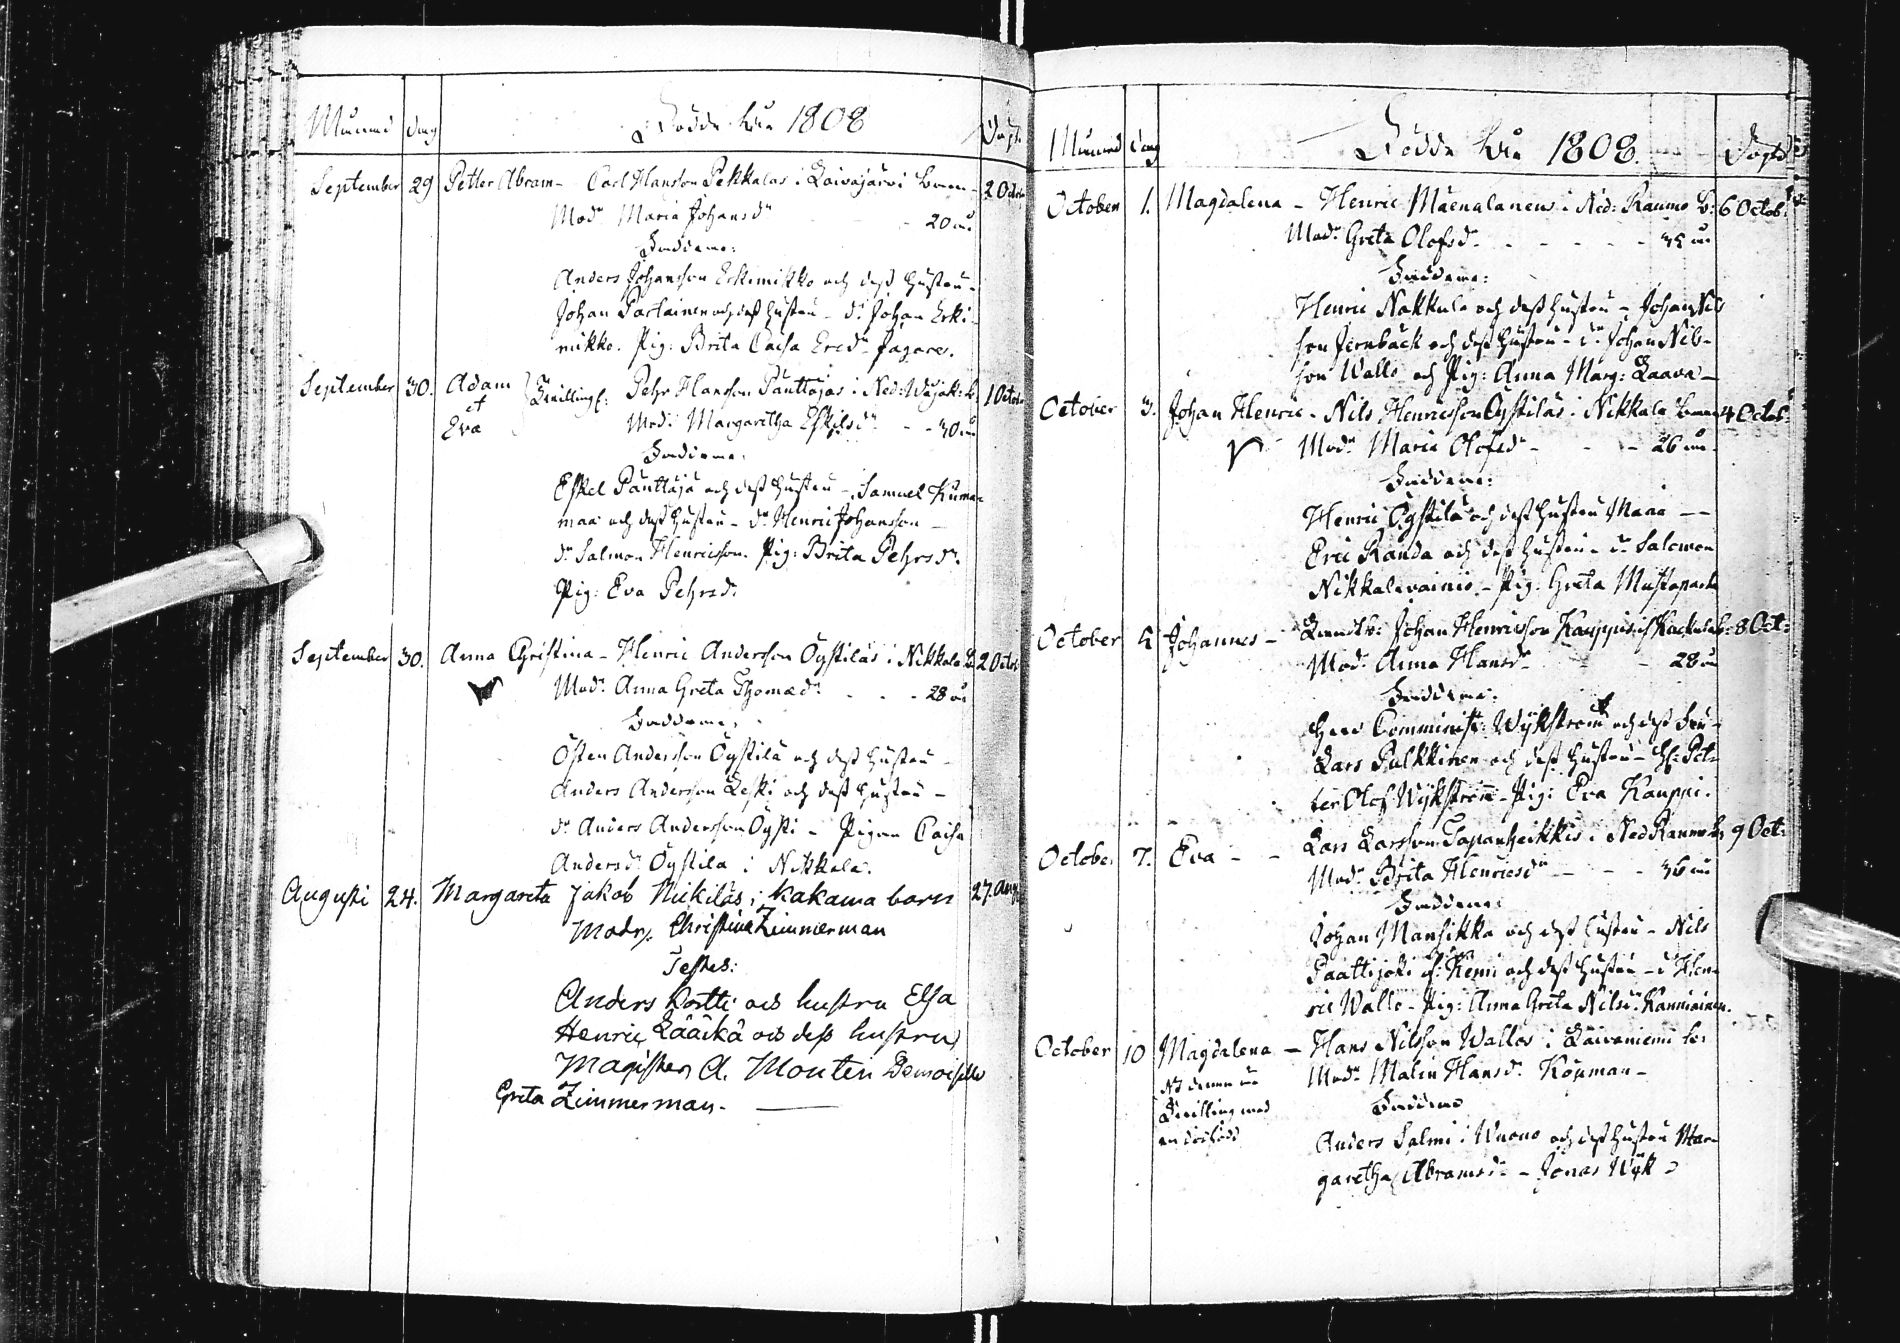 Månad dag Födde År 1808 Döpt.
September 29 Petter Abram - Carl Hansson Pekkalas i Laivajärvi barn - 2 Octob
Modr Maria Johansdr - - 20 år
Faddrarne:
Anders Johansson Erkimikko och dess hustru -
Johan Partainen och dess hustru - dr Johan Erki
mikko. Pig: Brita Caisa Ericdr Jagare.
September 30. Adam et Eva Tvillingr: Pehr Hansson Panttajas i Ned: Wojak: b. 1 Octob
Modr Margaretha Eskilsdr - - 30 år
Faddrarne:
Eskel Panttaja och dess hustru - Samuel Kuma-
maa och dess hustru - dr Henric Johansson -
dr Salmon Henricsson. Pig: Brita Pehrsdr.
Pig: Eva Pehrsdr.
September 30. Anna Christina - Henric Andersson Öystiläs i Nikkala b 2 Octob
Modr Anna Greta Thomædr - - - 28 år
Faddrarne:
Östen Andersson Öystilä och dess hustru -
Anders Andersson Leski och dess hustru -
dr Anders Andersson Öysti - Pigan Caisa
Andersdr Öystila i Nikkala.
Augusti 24. Margareta Jakob Nickiläs i Kakama barn 27. Aug
Modr. Christina Zimmerman
Testes:
Anders Kortti och hustru Elsa
Henric Läåckå och dess hustru
Magister A. Montin Demoiselle
Greta Zimmerman. -
Månad dag Födde År 1808. Döpte
October 1. Magdalena - Henric Mäenalanens i Ned: Raumo b: 6 Octob:
Modr Greta Olofsdr - - - - - 35 år
Faddrarne:
Henric Nakkula och dess hustru - Johan Nils
son Jernbäck och dess hustru - dr Johan Nils-
son Wallo och Pig: Anna Marg: Laava -
October 3. Johan Henric - Nils Henricsson Öystiläs i Nikkala barn 4 Octob:
Modr Maria Olofsdr - - - 26 år -
Faddrarne:
Henric Öystilä och dess hustru Maria - -
Eric Randa och dess hustru - dr Salomon
Nikkalavainio - Pig: Greta Mustaparta
October 5 Johannes - Landtb: Johan Henricsson Kauppis i b: 8 Oct:
Modr Anna Hansdr - 28 år
Faddrarne:
Herr Comminist: Wijkström och dess Fru -
Lars Pulkkinen och dess hustru - H: Pet-
ter Olof Wijkström - Pig: Eva Kauppi.
October 7. Eva - - Lars Larsson Tapanheikkis i Ned Raumo b 9 Oct:
Modr Brita Henricsdr - - - 36 år
Faddrarne:
Johan Mansikka och dess hustru - Nils
Paattijoki fr: Kemi och dess hustru - dr Hen-
ric Wallo - Pig: Anna Greta Nilsdr Kanniainen.
October 10 Magdalena - Hans Nilsson Wallos i Laivaniemi b:
Nb denna är
Modr Malin Hansdr Köpman -
Tvilling med
en dödfödd
Faddrarne
Anders Salmi i Wuono och dess hustru Mar-
garetha Abramsdr - Jonas Wijk -